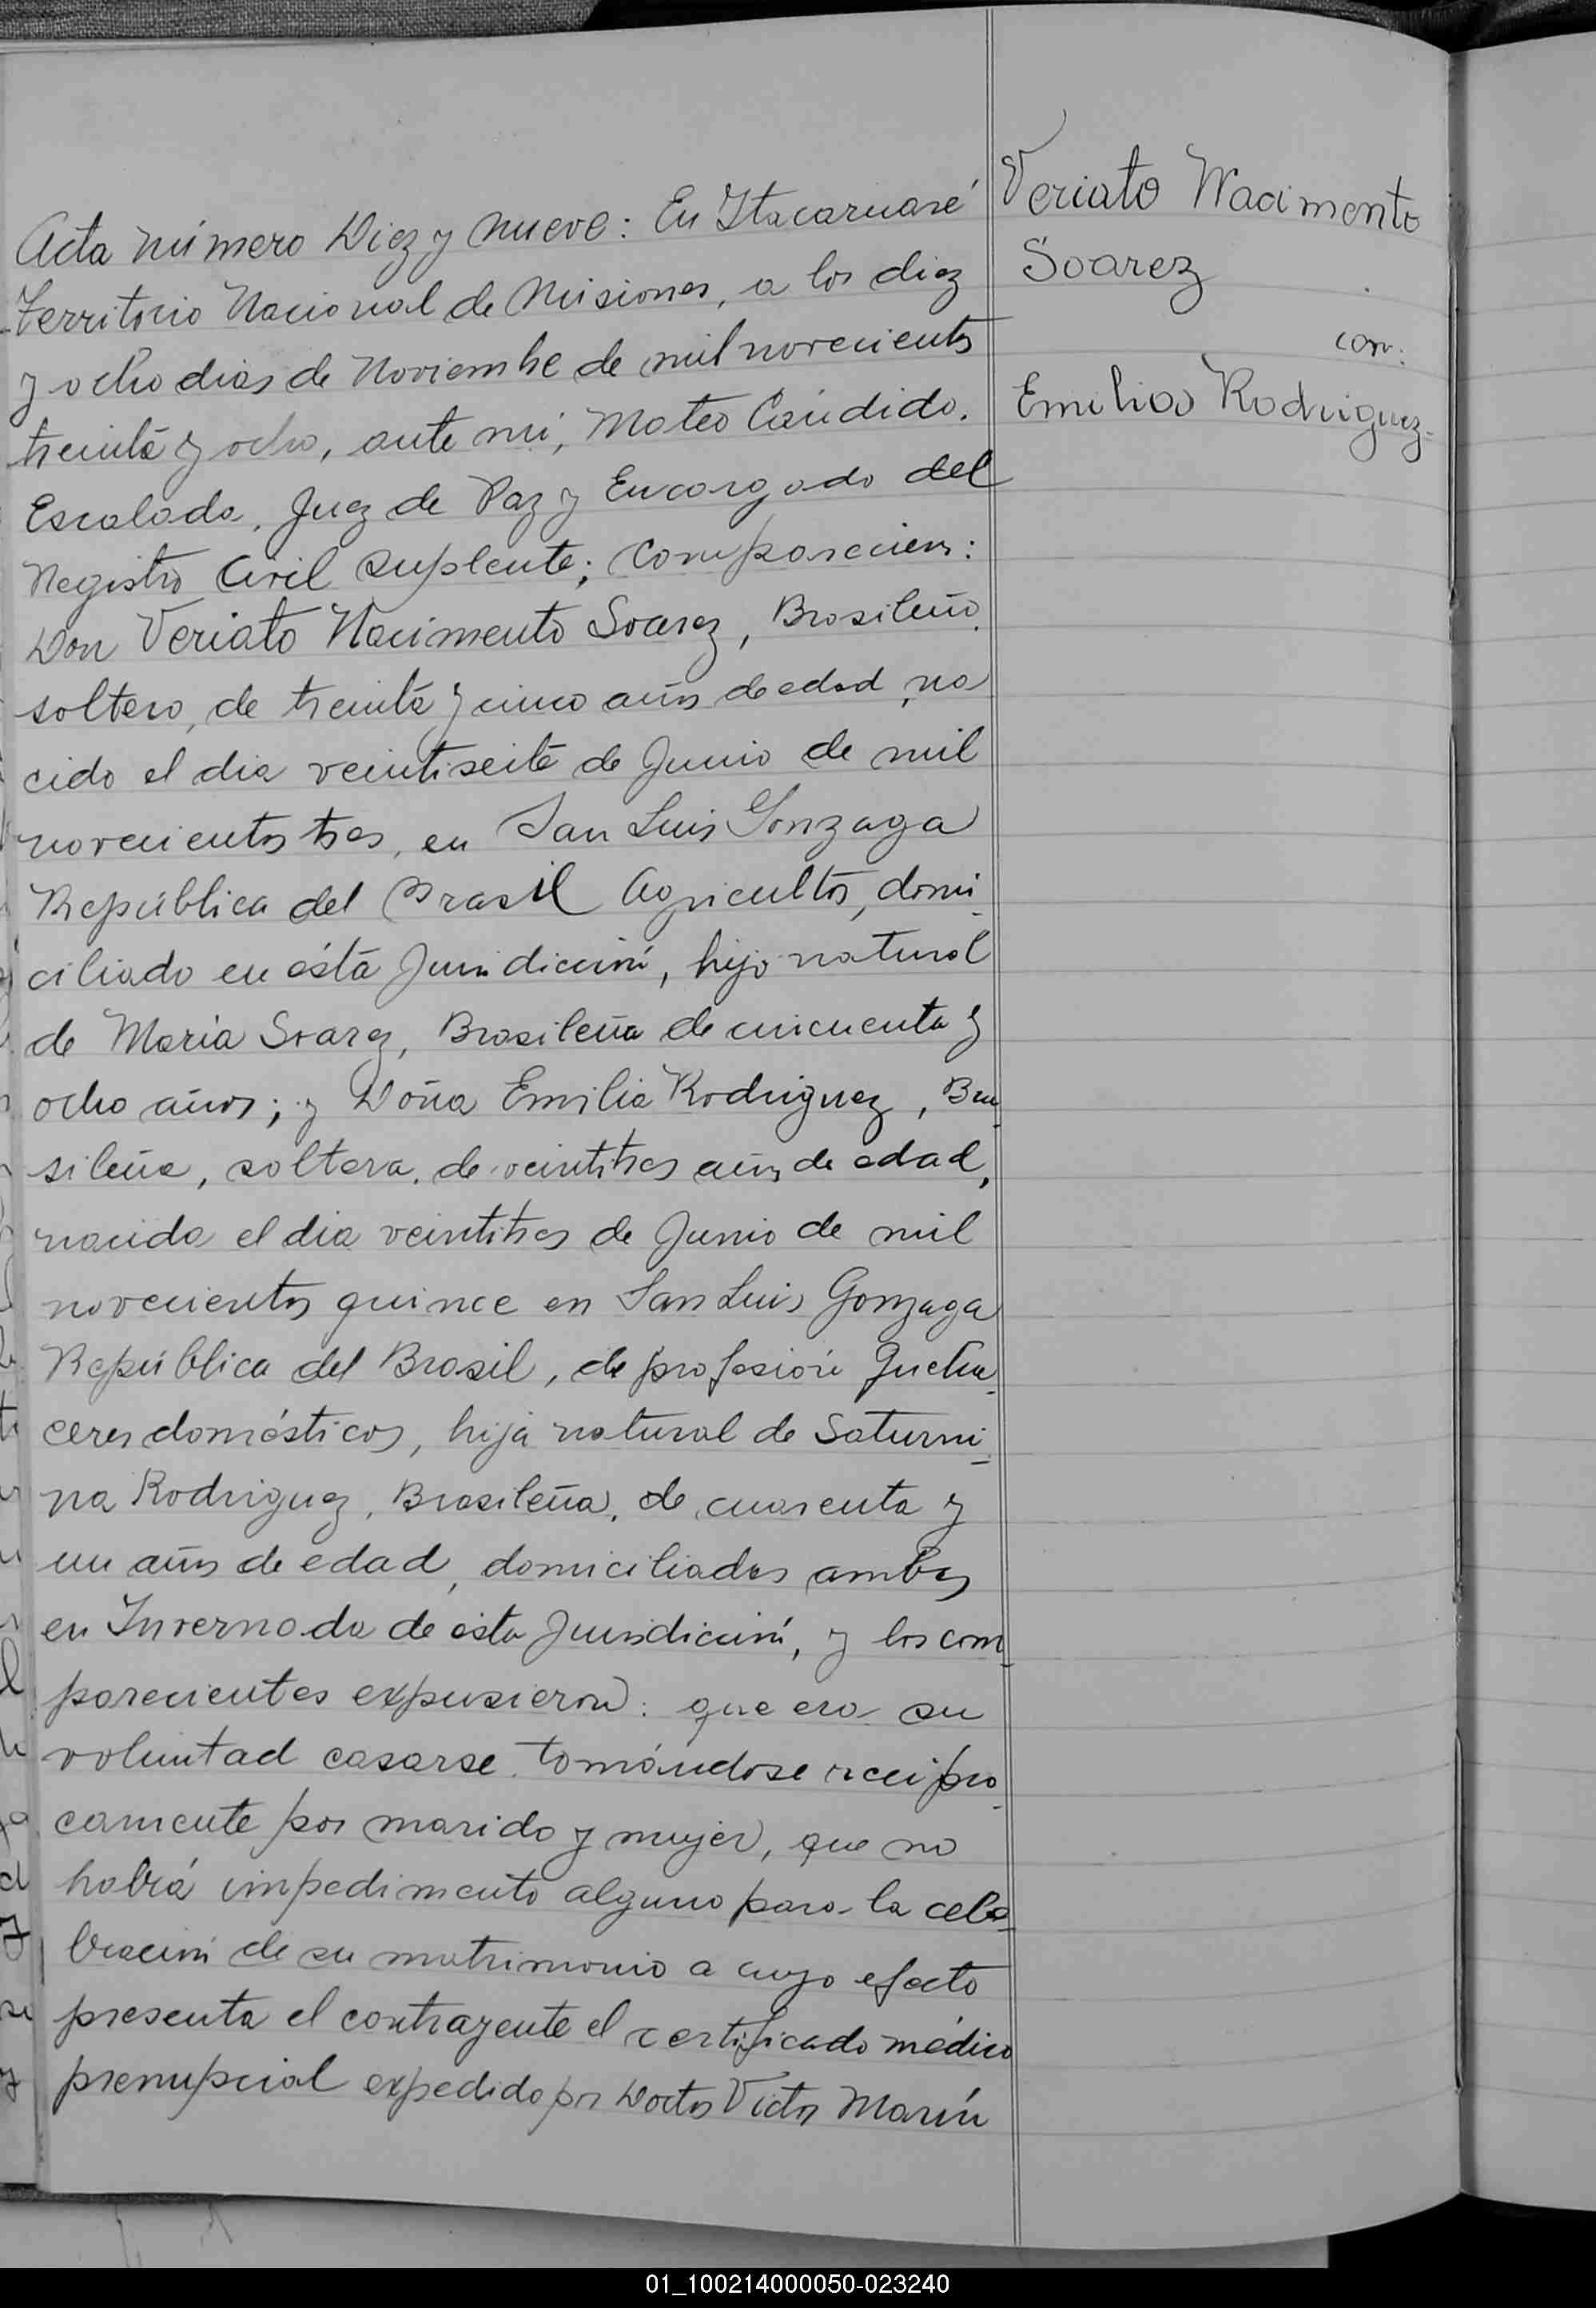 Acta número Diez y nueve: En Itacaruaré
Territorio Nacional de Misiones, a los diez
y ocho dias de Noviembre de mil novecientos
treinta y ocho, ante mi, Mateo Cándido.
Escalada, Juez de Paz y Encargado del
Registro Civil Suplente; Comparecieron:
Don Veriato Nacimento Soarez, Brasileño
soltero, de treinta y cinco años de edad, na
cido el dia veintisiete de Junio de mil
novecientos tres, en San Luis Gonzaga
República del Brasil Agricultor, domi-
ciliado en ésta Jurisdicción, hijo natural
de Maria Soarez, Brasileña de cincuenta y
ocho años; y Doña Emilia Rodriguez, Bra-
sileña, soltera, de veintitres años de edad,
nacida el dia veintitres de Junio de mil
novecientos quince en San Luis Gonzaga
República del Brasil, de profesión Queha-
ceres domésticos, hija natural de Saturni-
na Rodriguez, Brasileña, de cuarenta y
un años de edad, domiciliados ambos
en Invernada de esta Jurisdicción, y los com-
parecientes expusieron: que era su
voluntad casarse tomándose recipro-
camente por marido y mujer, que no
habrá impedimento alguno para la cele-
bración de su matrimonio a cuyo efecto
presenta el contrayente el certificado médico
prenupcial expedido por Doctor Victor Marín
Veriato Nacimento
Soarez
con:
Emilia Rodriguez-
01_100214000050-023240